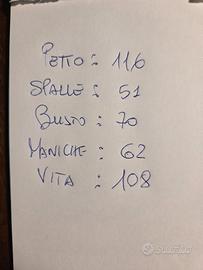 PETTO: 116
SPALLE: 51
BUSTO: 70
MANICHE: 62
VITA: 108
subito